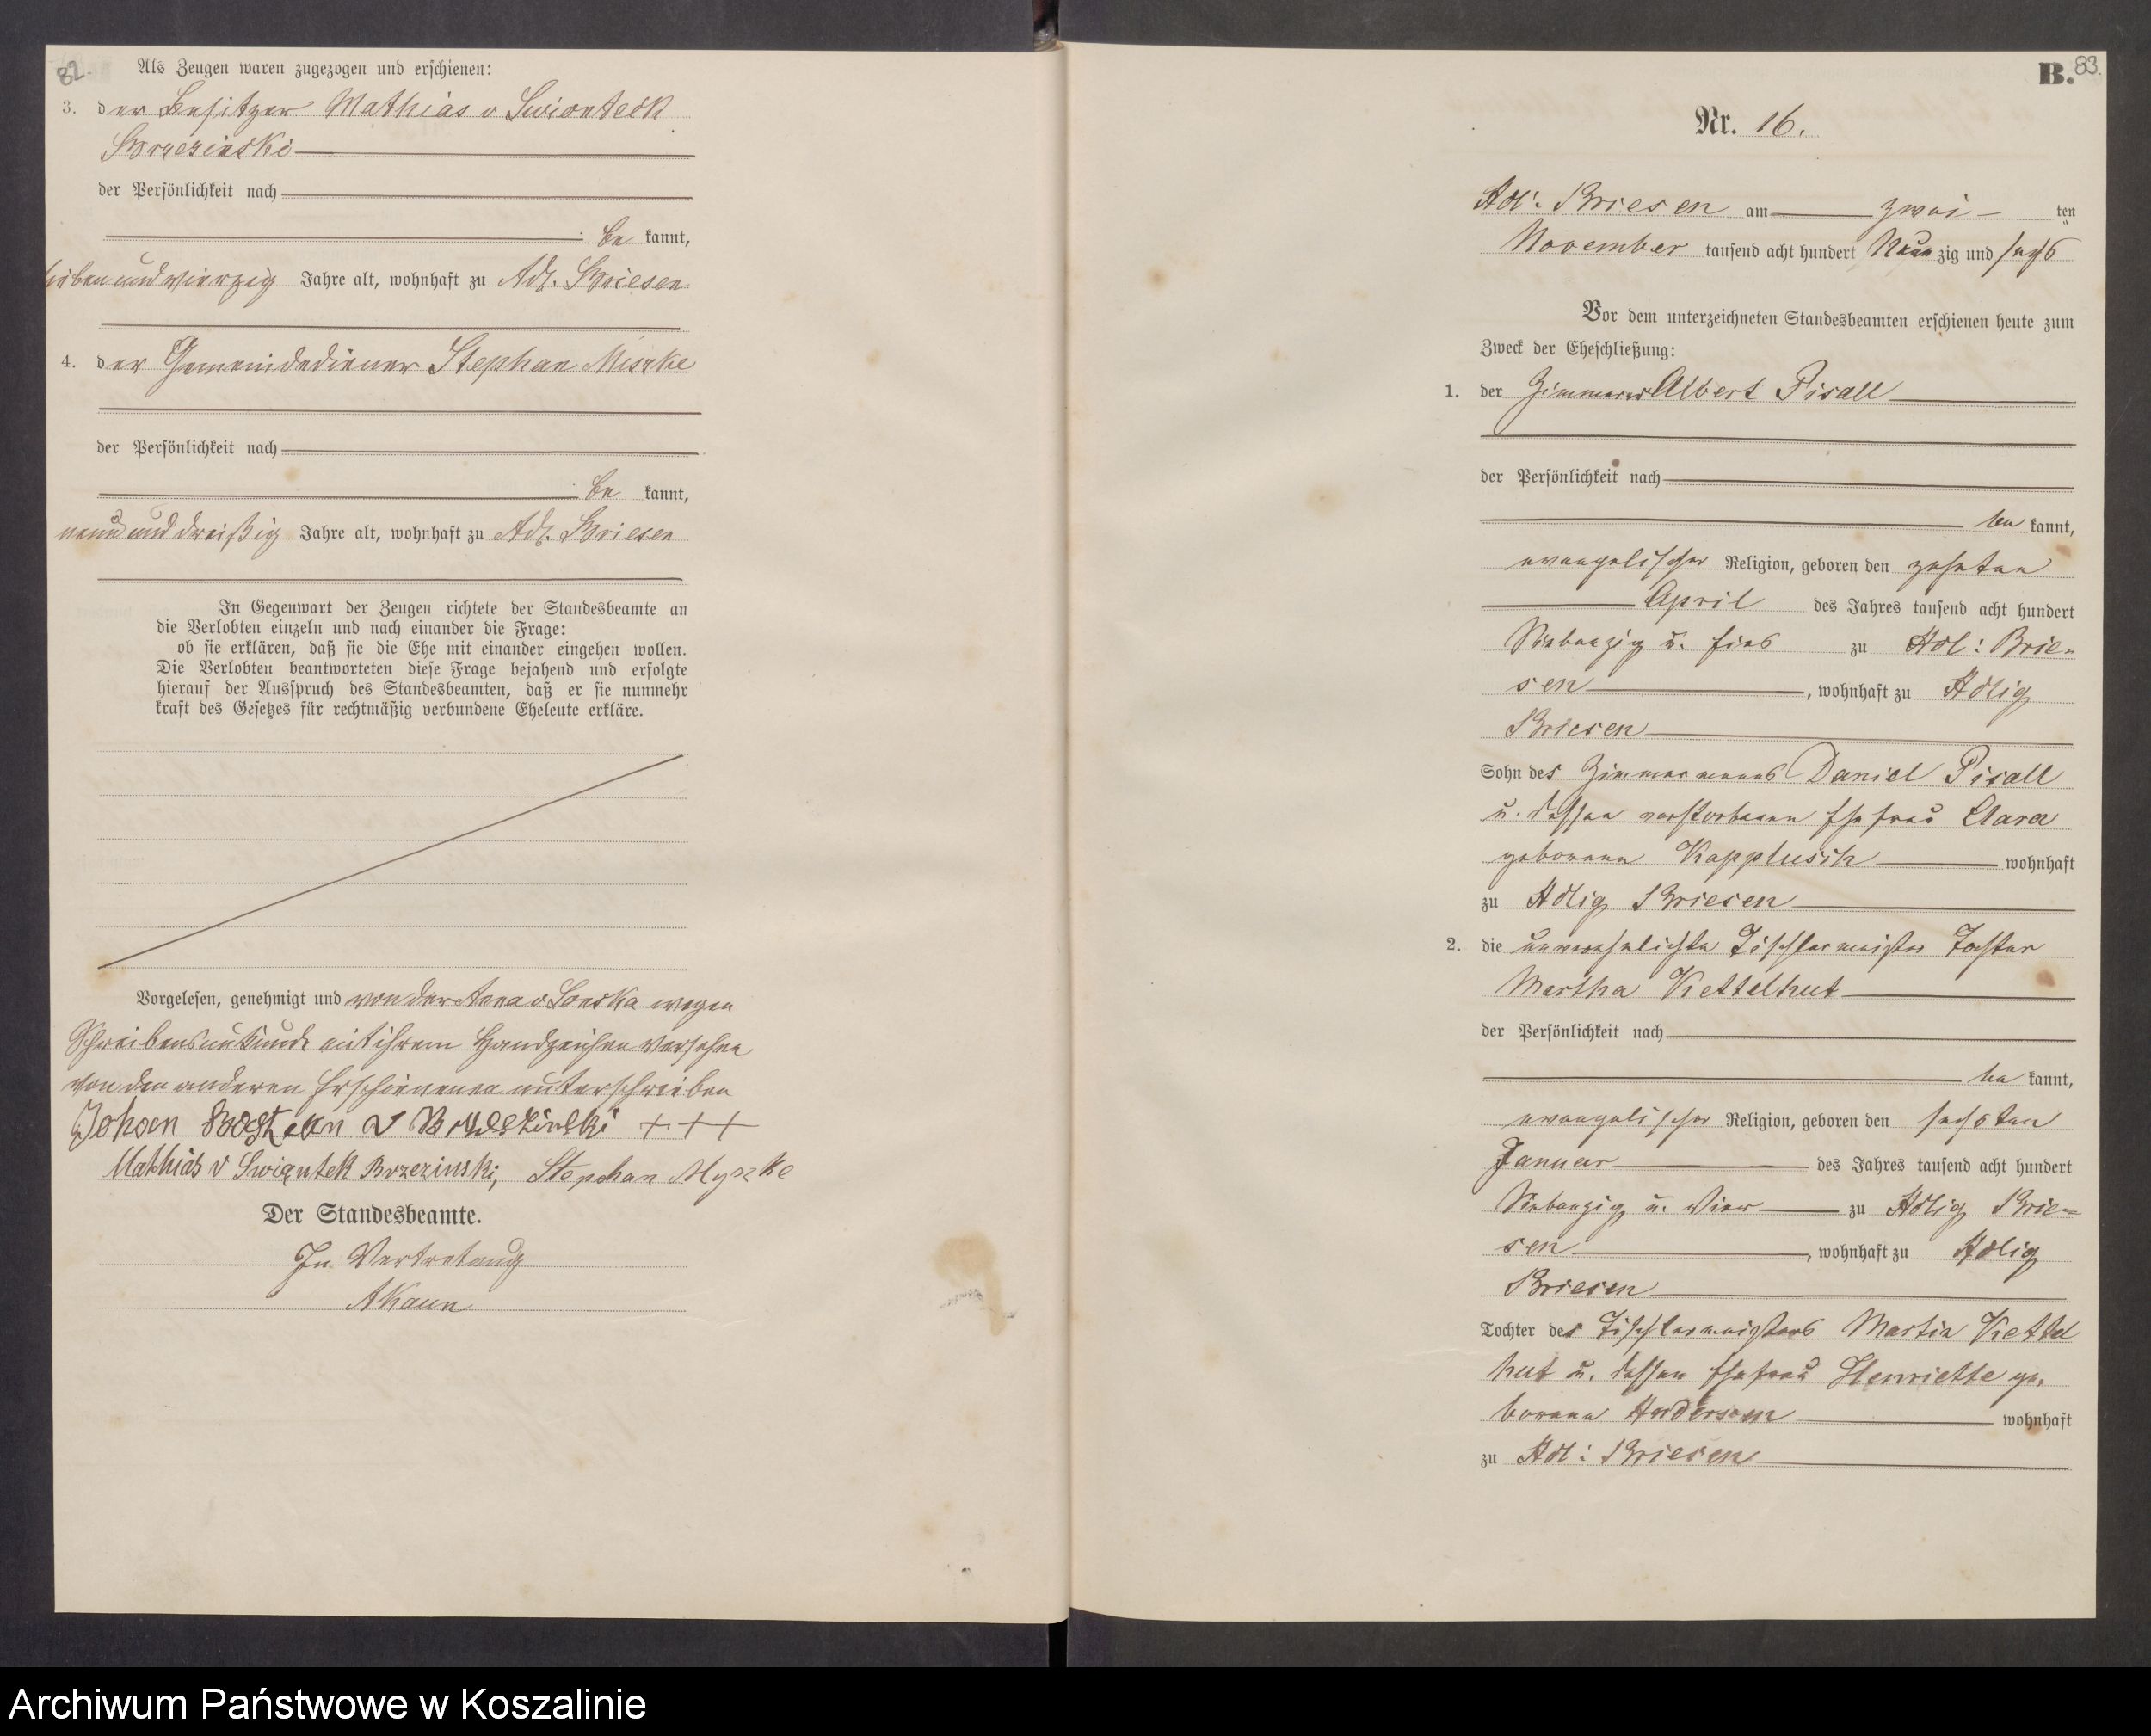 82.
Als Zeugen waren zugezogen und erschienen:
3. der Besitzer Mathias v Swionteck
Brzezinski
der Persönlichkeit nach
be kannt,
sieben und vierzig Jahre alt, wohnhaft zu Adl. Briesen
4. der Gemeindediener Stephan Miszke
der Persönlichkeit nach
be kannt,
neun und dreißig Jahre alt, wohnhaft zu Adl. Briesen
In Gegenwart der Zeugen richtete der Standesbeamte an
die Verlobten einzeln und nach einander die Frage:
ob sie erklären, daß sie die Ehe mit einander eingehen wollen.
Die Verlobten beantworteten diese Frage bejahend und erfolgte
hierauf der Ausspruch des Standesbeamten, daß er sie nunmehr
kraft des Gesetzes für rechtmäßig verbundene Eheleute erkläre.
Vorgelesen, genehmigt und von der Anna v wegen
Schreibensunkunde mit ihrem Handzeichen versehen
von den anderen Erschienenen unterschrieben
Johan v +++
Mathias v Swiąntek Brzezinski, Stephan Myszke
Der Standesbeamte.
In Vertretung
AKaun
B. 83.
Nr. 16.
Adl: Briesen am zwei ten
November tausend acht hundert Neun zig und sechs
Vor dem unterzeichneten Standesbeamten erschienen heute zum
Zweck der Eheschließung:
1. der Zimmerer Albert Pisall
der Persönlichkeit nach
be kannt,
evangelischer Religion, geboren den zehnten
April des Jahres tausend acht hundert
Siebenzig u. eins zu Adl: Brie-
sen, wohnhaft zu Adlig
Briesen
Sohn des Zimmermanns Daniel Pisall
u. dessen verstorbenen Ehefrau Clara
geborenen Kapplusch wohnhaft
zu Adlig Briesen
2. die unverehelichte Tischlermeister Tochter
Martha Kettelhut
der Persönlichkeit nach
be kannt,
evangelischer Religion, geboren den sechsten
Januar des Jahres tausend acht hundert
Siebenzig u. Vier zu Adlig Brie-
sen, wohnhaft zu Adlig
Briesen
Tochter des Tischlermeisters Martin Kettel
hut u. dessen Ehefrau Henriette ge.
borenen Andersom wohnhaft
zu Adl: Briesen
Archiwum Państwowe w Koszalinie